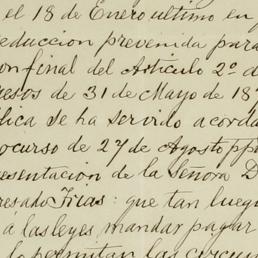 el 18 de Enero ultimo en
reduccion prevenida para
final del Articulo 2º d
esos de 31 de Mayo de 18
blica se ha servido acorda
ocurso de 27 de Agosto ppd
resentacion de la Señora D
resado Frias: que tan lueg
á las leyes mandar pagar
lo permitan las circun